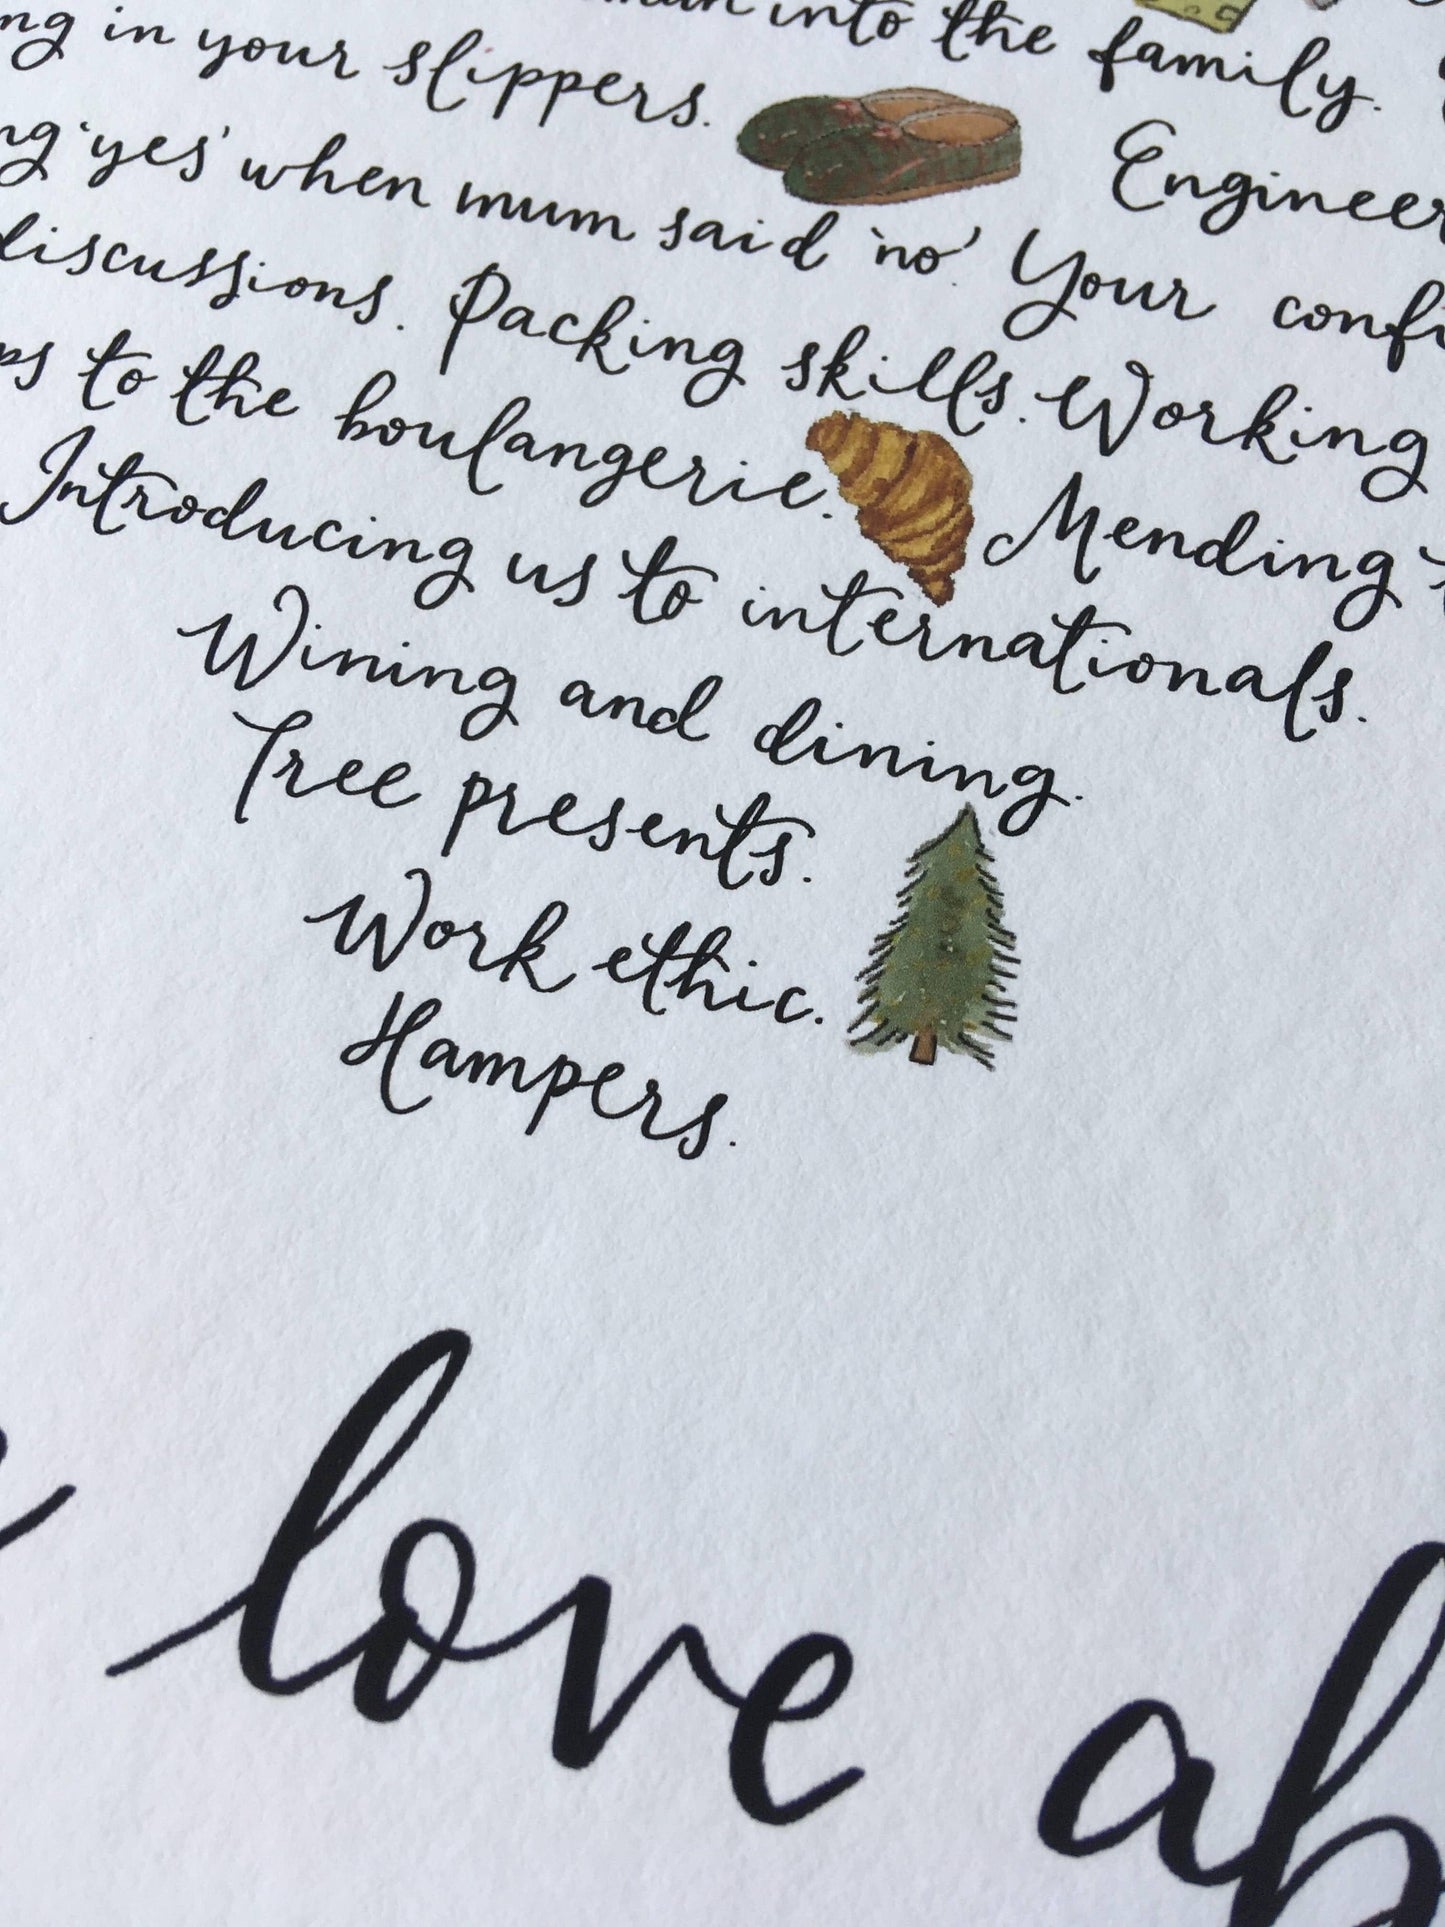 into the family.
in your slippers.
Engineer
'yes' when mum said 'no'. Your confi
discussions. Packing skills. Working
to the boulangerie. Mending
Introducing us to internationals.
Wining and dining.
Tree presents.
Work ethic.
Hampers.
love ab